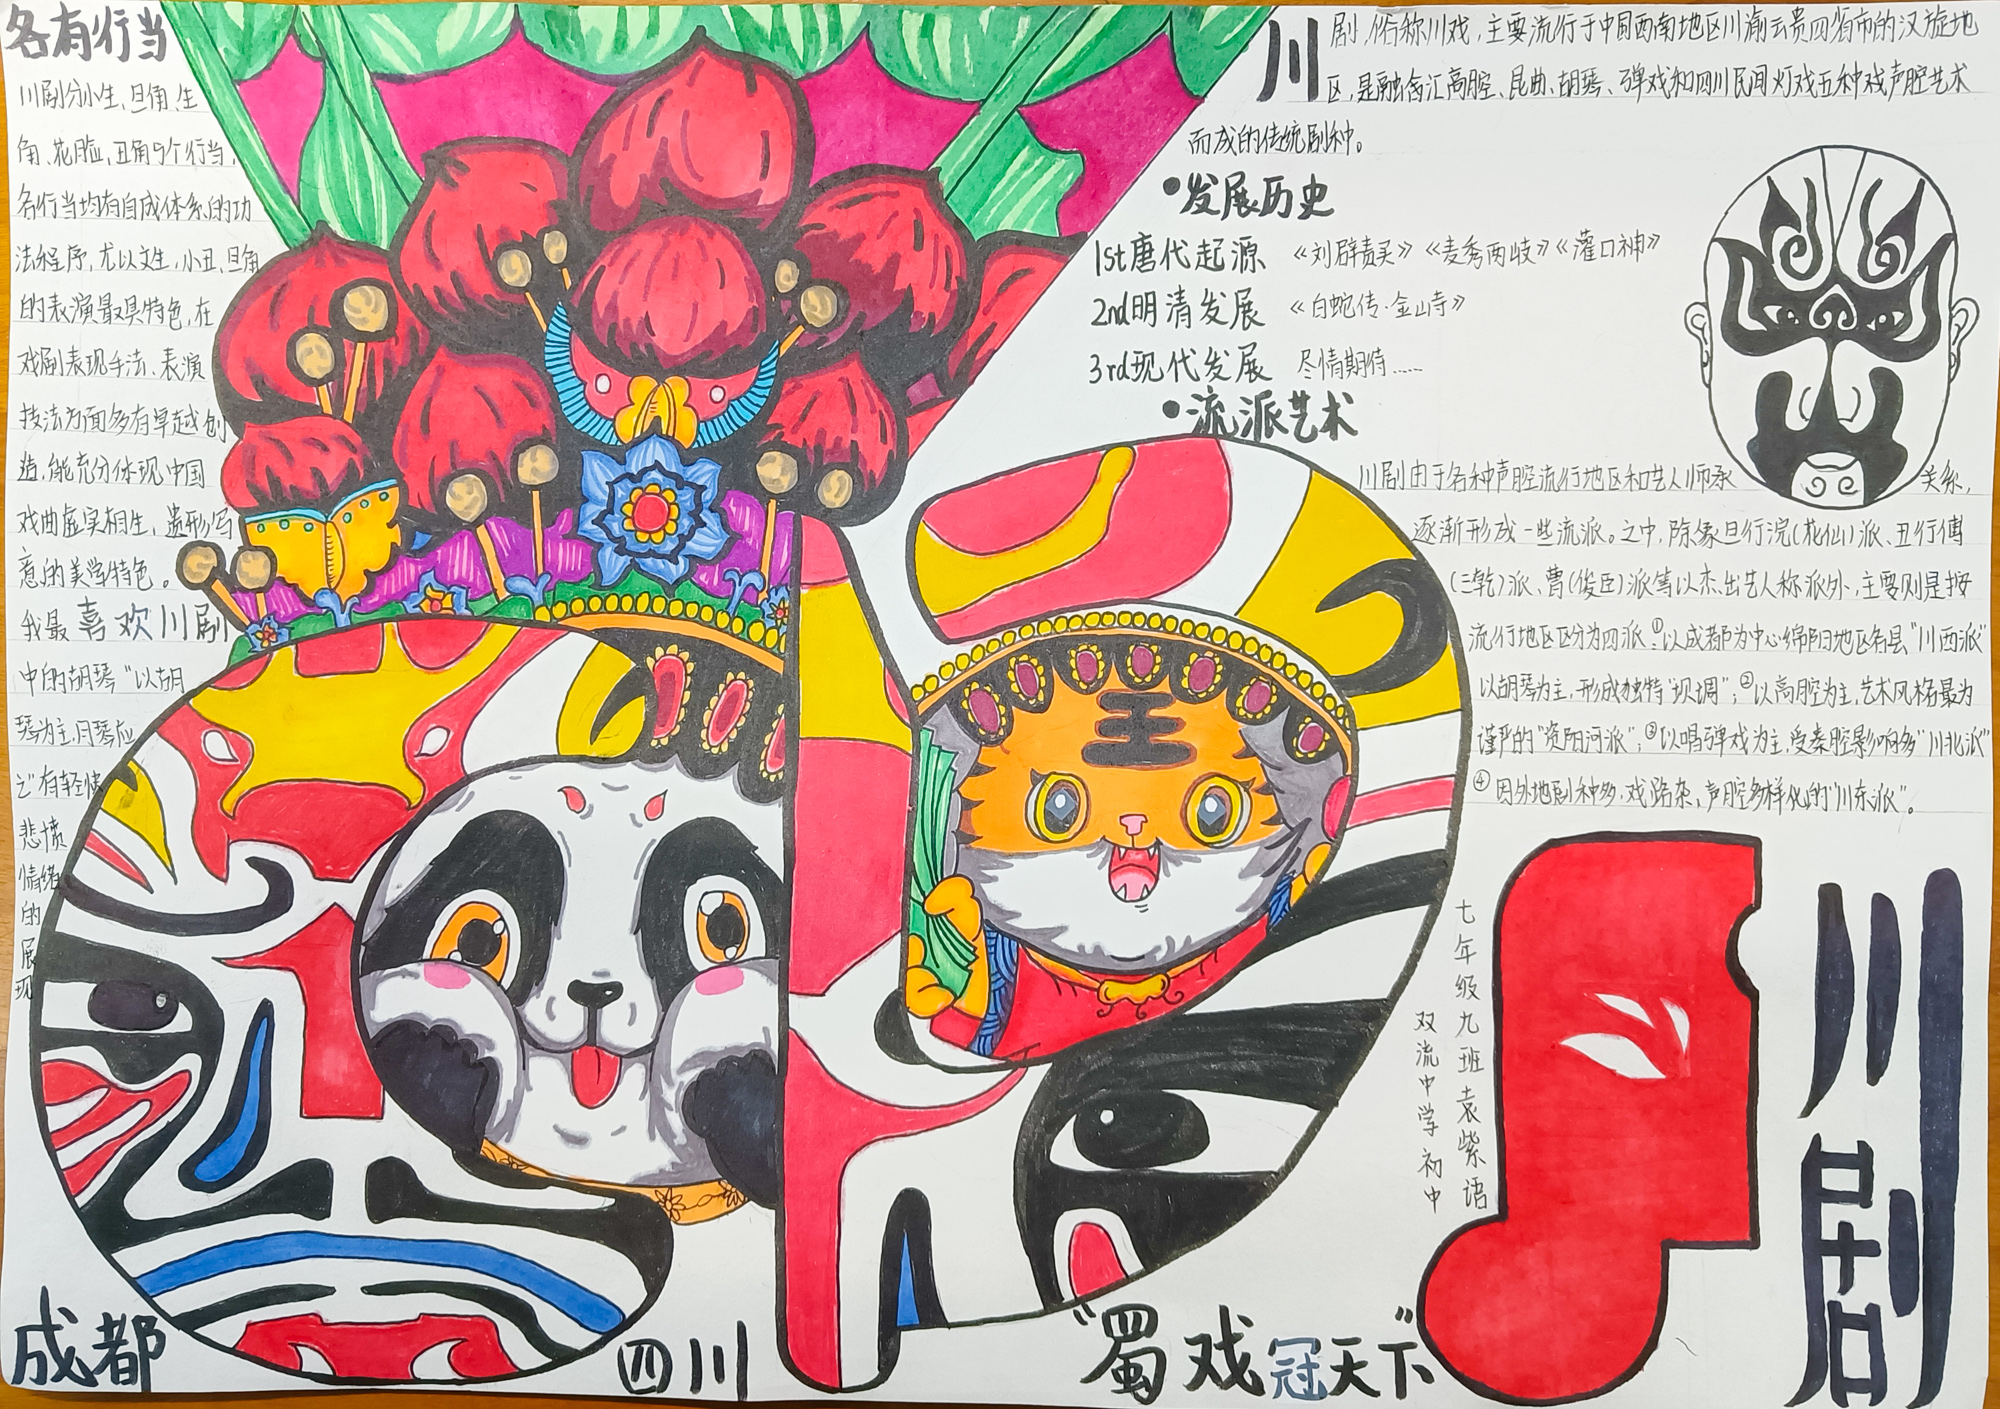 各有行当
川剧分小生、旦角、生
角、花脸、丑角5个行当,
各行当均有自成体系的功
法程序,尤以文生,小丑,旦角
的表演最具特色,在
戏剧表现手法、表演
技法方面多有卓越创
造,能充分体现中国
戏曲虚实相生、遗形写
意的美学特色。
我最喜欢川剧
中的胡琴“以胡
琴为主,月琴应
之”有轻快
悲愤
情绪
的
展
现
川剧,俗称川戏,主要流行于中国西南地区川渝云贵四省市的汉族地
区,是融合汇高腔、昆曲、胡琴、弹戏和四川民间灯戏五种戏声腔艺术
而成的传统剧种。
•发展历史
1st唐代起源 《刘辟责买》《麦秀两岐》《灌口神》
2nd明清发展 《白蛇传·金山寺》
3rd现代发展 尽情期待……
•流派艺术
川剧由于各种声腔流行地区和艺人师承关系,
逐渐形成一些流派。之中,除象旦行浣(花仙)派、丑行傅
(三乾)派、曹(俊臣)派等以杰出艺人称派外,主要则是按
流行地区区分为四派:①以成都为中心绵阳地区各县“川西派”
以胡琴为主,形成独特“坝调”;②以高腔为主,艺术风格最为
谨严的“资阳河派”;③以唱弹戏为主,受秦腔影响多“川北派”
④因外地剧种多,戏路杂,声腔多样化的“川东派”。
王
七年级九班袁紫语
双流中学初中
川剧
成都
四川
“蜀戏冠天下”